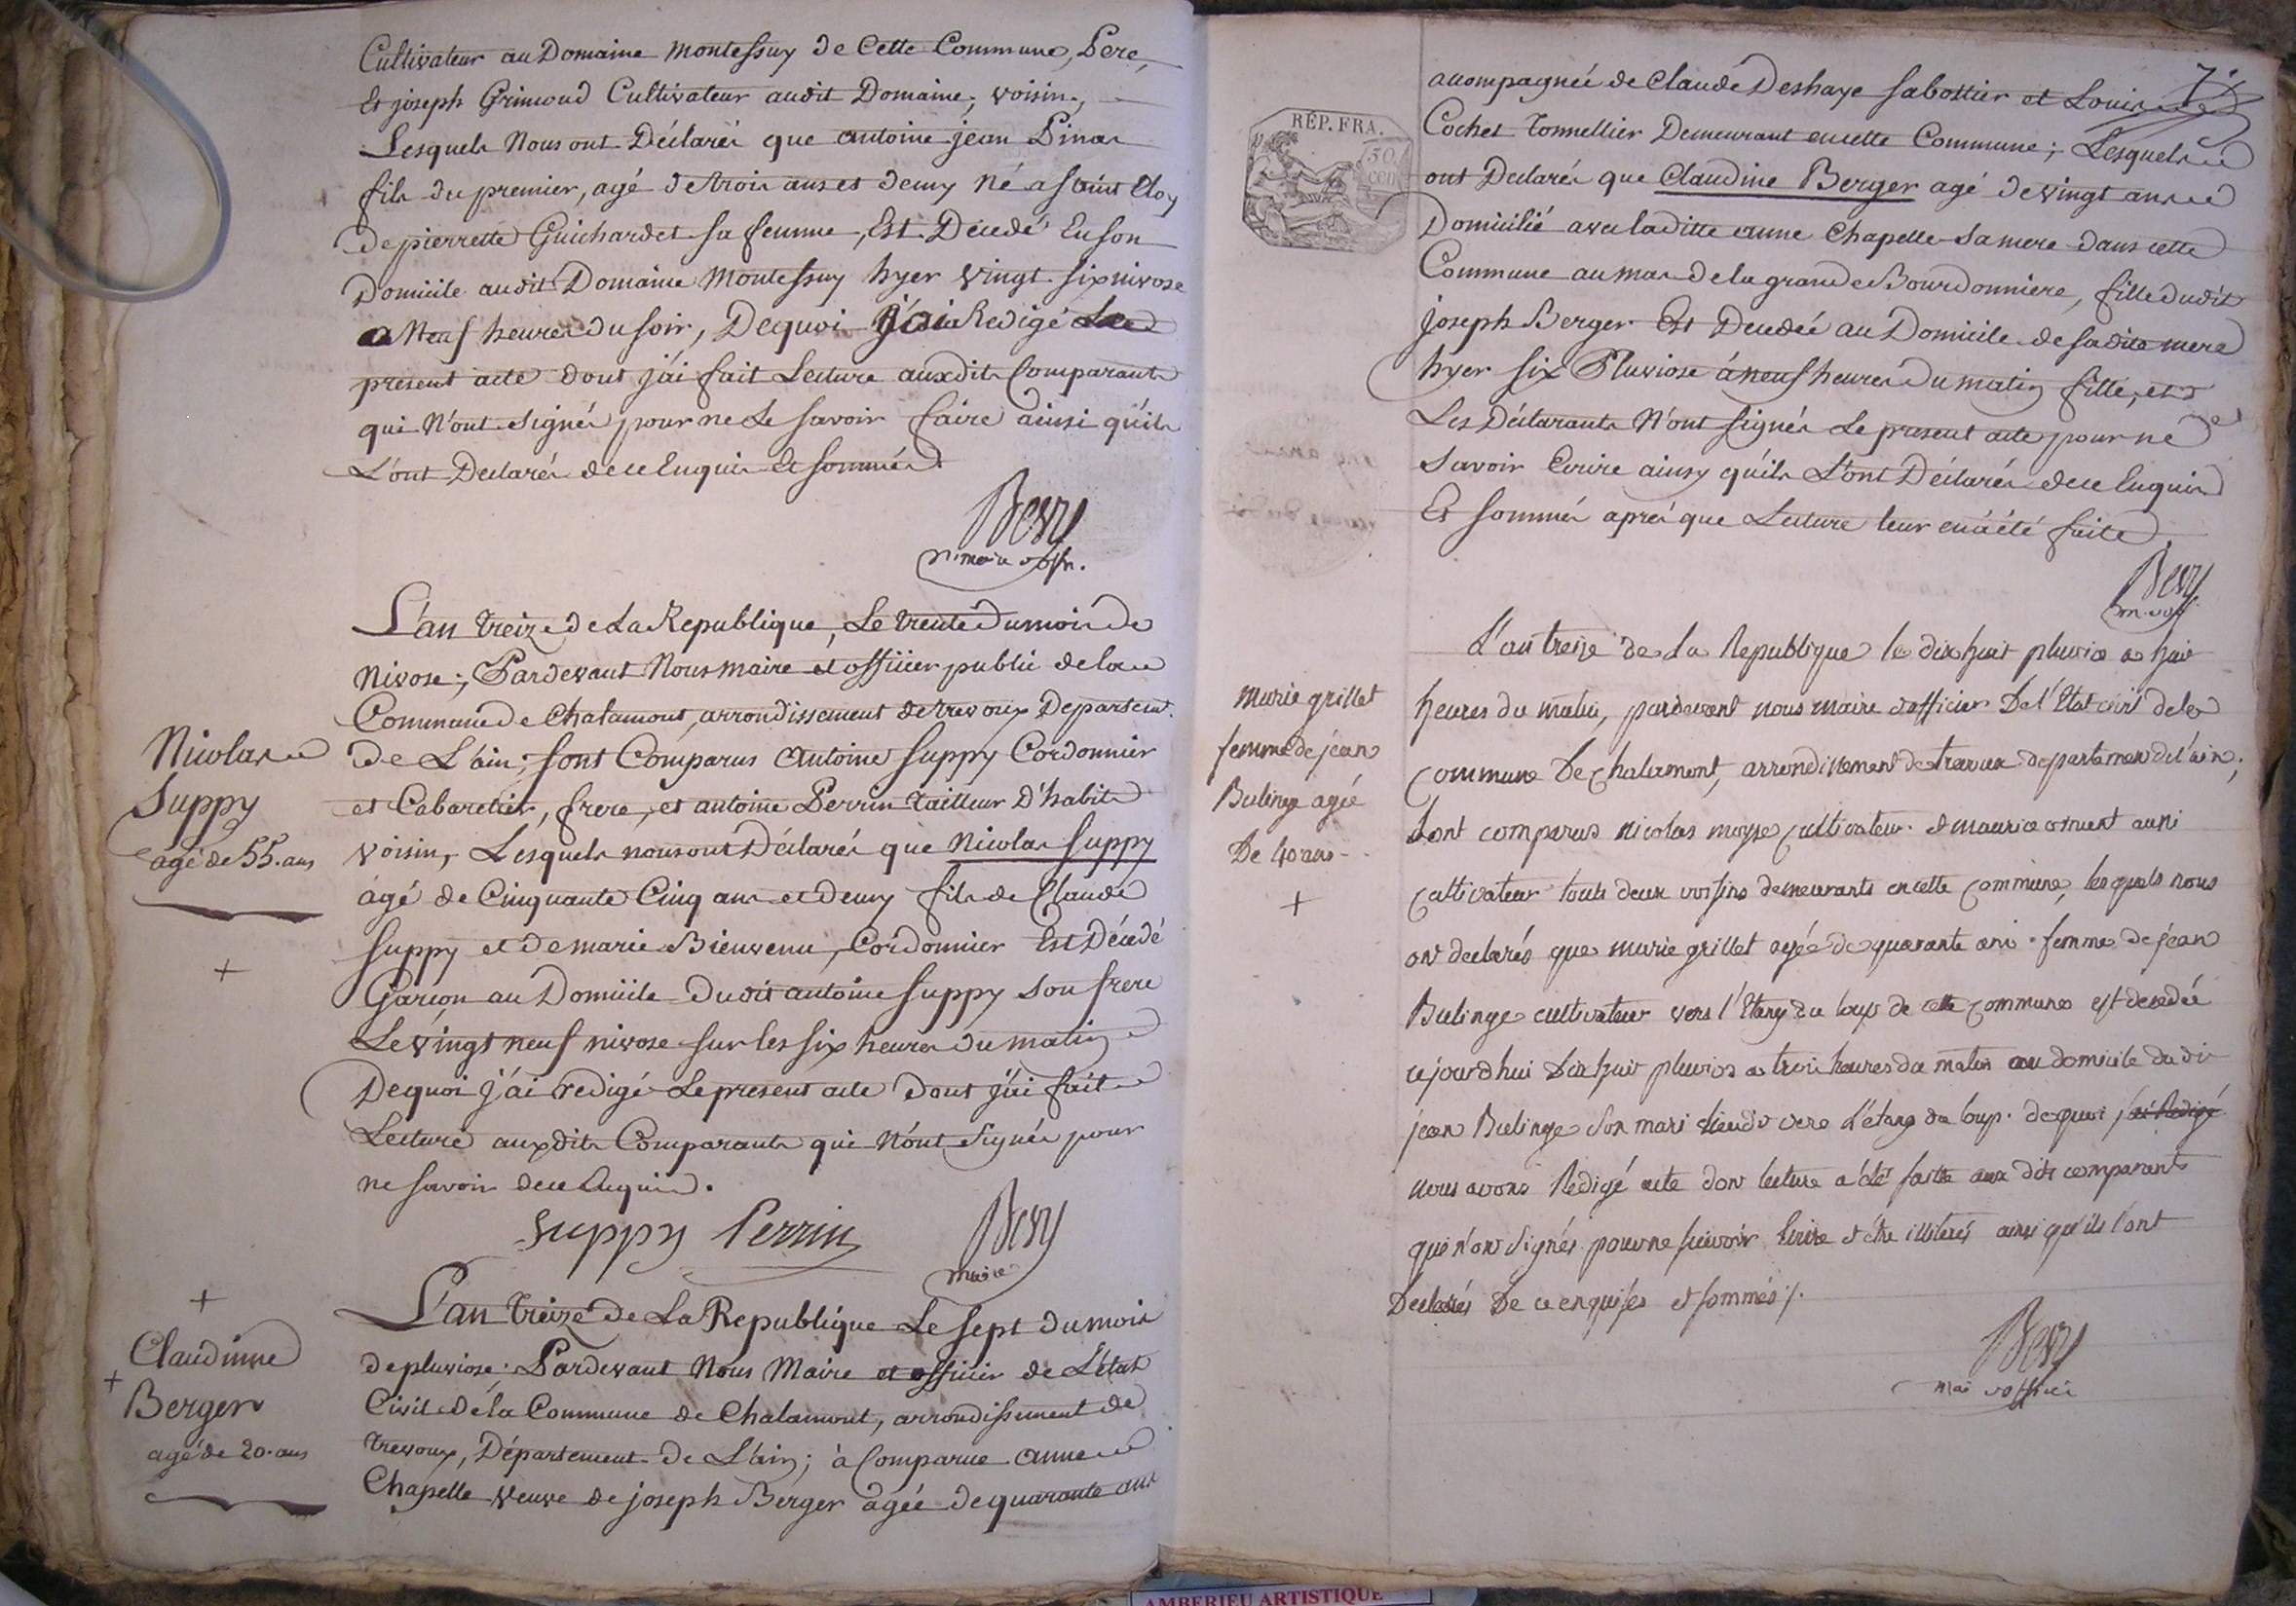 Cultivateur au Domaine Montessuy de Cette Commune, Pere,
Et joseph Grimoud Cultivateur audit Domaine, voisin,
Lesquels Nous ont Déclarés que antoine jean Pinas
fils du premier, agé de trois ans et demy Né a Saint Eloy
de pierrette Guichardet sa femme, Est Décedé En son
Domicile audit Domaine Montessuy hyer vingt six nivose
a Neuf heures du soir, Dequoi j'ai Redigé Le
present acte dont j'ai fait Lecture auxdits Comparants
qui N'ont signés pour ne Le savoir faire ainsi qu'ils
L'ont Declarés de ce Enquis Et sommés.
Bevy
maire
L'an treize de La Republique, Le trente du mois de
Nivose; Pardevant Nous maire et officier public de la
Commune de Chalamont, arrondissement de trevoux Departemt.
de L'ain; sont Comparus Antoine Suppy Cordonnier
et Cabaretier, frere, et antoine Perrin tailleur D'habits
voisin, Lesquels nous ont Déclarés que Nicolas Suppy
agé de Cinquante Cinq ans et demy fils de Claude
Suppy et de marie Bienvenu, Cordonnier Est Décedé
Garçon au Domicile dudit antoine Suppy Son frere
Le vingt neuf nivose sur les six heures du matin
Dequoi j'ai redigé Le present acte Dont j'ai fait
Lecture auxdits Comparants qui N'ont Signés pour
ne savoir de ce Enquis.
Suppy Perrin Bevy
maire
Nicolas
Suppy
agé de 55. ans
+
L'an treize de La Republique Le sept du mois
de pluviose; Pardevant Nous Maire et officier de L'état
Civil de la Commune de Chalamont, arrondissement de
trevoux, Département de L'ain; à Comparue anne
Chapelle veuve de joseph Berger agée de quarante ans
+
Claudinne
+
Berger
agé de 20. ans
7.
RÉP. FRA.
50
cen
accompagnée de Claude Deshaye Sabottier et Louis
Cochet Tonnellier Demeurant en cette Commune; Lesquels
ont Declarés que Claudine Berger agé de vingt ans
Domicilié avec laditte anne Chapelle sa mere dans cette
Commune au mas de la grande Bourdonniere, fille dudit
joseph Berger Est Decedée au Domicile de sadite mere
hyer six Pluviose à neuf heures du matin fille, et
Les Déclarants N'ont signés Le present acte pour ne
savoir Ecrire ainsy qu'ils L'ont Déclarés de ce Enquis
Et sommés après que Lecture leur en a été faite
Bevy
L'an treize de La Republique le dix huit pluvios a huit
heures du matin, pardevant nous maire et officier De l'Etat civil de la
commune De chalamont, arrondissement de trevoux departement de l'ain;
sont comparus nicolas moyse cultivateur et maurice cornent aussi
cultivateur touts deux voisins demeurants en cette commune, lesquels nous
ont declarés que marie grillet agée de quarante ans femme de jean
Bulinge cultivateur vers l'Etang du loup de cette commune est decedée
cejourdhui dix huit pluvios a trois heures du matin au domicile dudit
jean Bulinge son mari lieudit vers l'étang du loup. dequoi j'ai Redigé
nous avons Redigé acte dont lecture a été faitte aux dits comparants
qui n'ont signés pour ne scavoir Ecrire et être illiterés ainsi qu'ils l'ont
Declarés De ce enquises et sommés
Bevy
officier
marie grillet
femme de jean
Bulinge agée
De 40 ans
+
AMBERIEU ARTISTIQUE